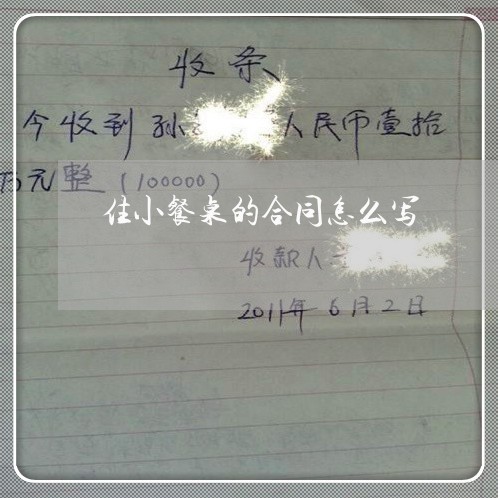 收条
今收到孙人民币壹拾
万元整(100000)
住小餐桌的合同怎么写
收款人
2011年6月2日